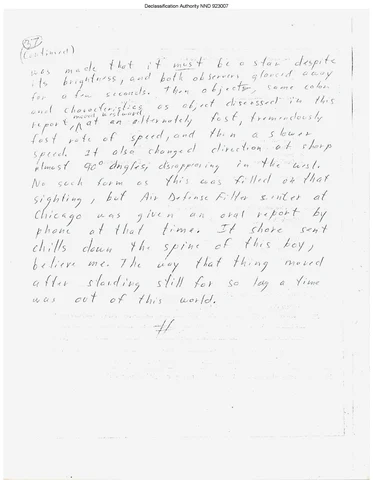 Declassification Authority NND 923007
(continued)
was made that it must be a star despite
its brightness, and both observers glanced away
for a few seconds. Then object, same color
and characteristics as object discussed in this
report, moved westward at an alternately fast, tremendously
fast rate of speed, and then a slower
speed. It also changed direction at sharp
almost 90° angles, disappearing in the west.
No such form as this was filled on that
sighting, but Air Defense Filter senter at
Chicago was given an oral report by
phone at that time. It shore sent
chills down the spine of this boy,
believe me. The way that thing moved
after standing still for so log a time
was out of this world.
#